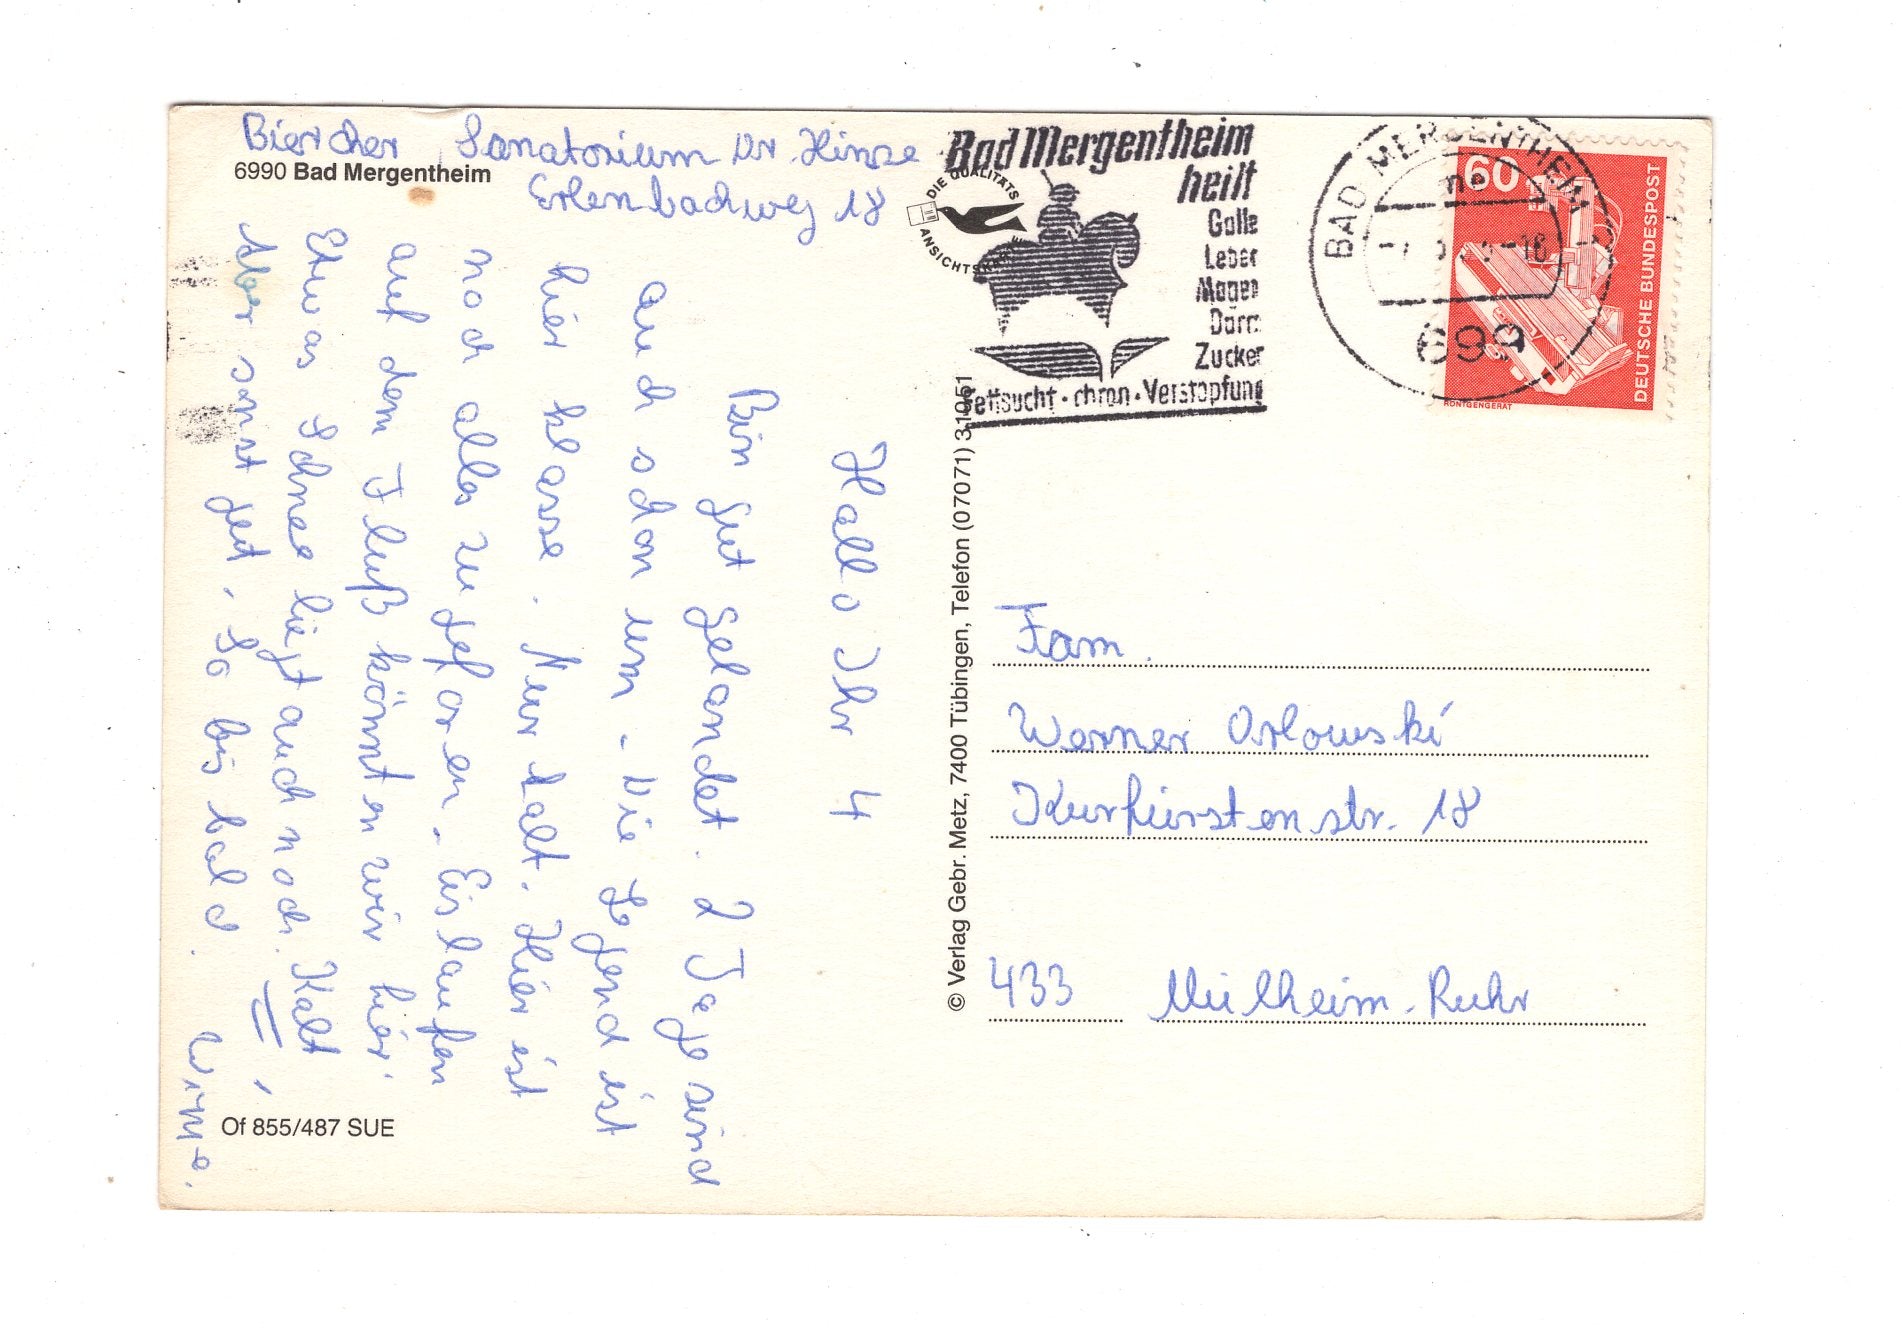 Biercher Sanatorium Dr. Hinse
6990 Bad Mergentheim
Erlenbachweg 18
Hallo Ihr 4
Bin gut gelandet. 2 Tage sind
auch schon um. Die Gegend ist
hier klasse. Nur kalt. Hier ist
noch alles zugefroren. Eislaufen
auf dem Fluß könnten wir hier.
Etwas Schnee liegt auch noch. Kalt
Aber sonst gut. So bis bald.
Of 855/487 SUE
DIE QUALITÄTS
ANSICHTSKARTE
Bad Mergentheim
heilt
Galle
Leber
Magen
Darm
Zucker
Fettsucht · chron · Verstopfung
BAD MERGENTHEIM
me
-16
699
60
DEUTSCHE BUNDESPOST
RÖNTGENGERÄT
© Verlag Gebr. Metz, 7400 Tübingen, Telefon (07071) 31051
Fam.
Werner Orlowski
Kurfürstenstr. 18
433 Mülheim-Ruhr